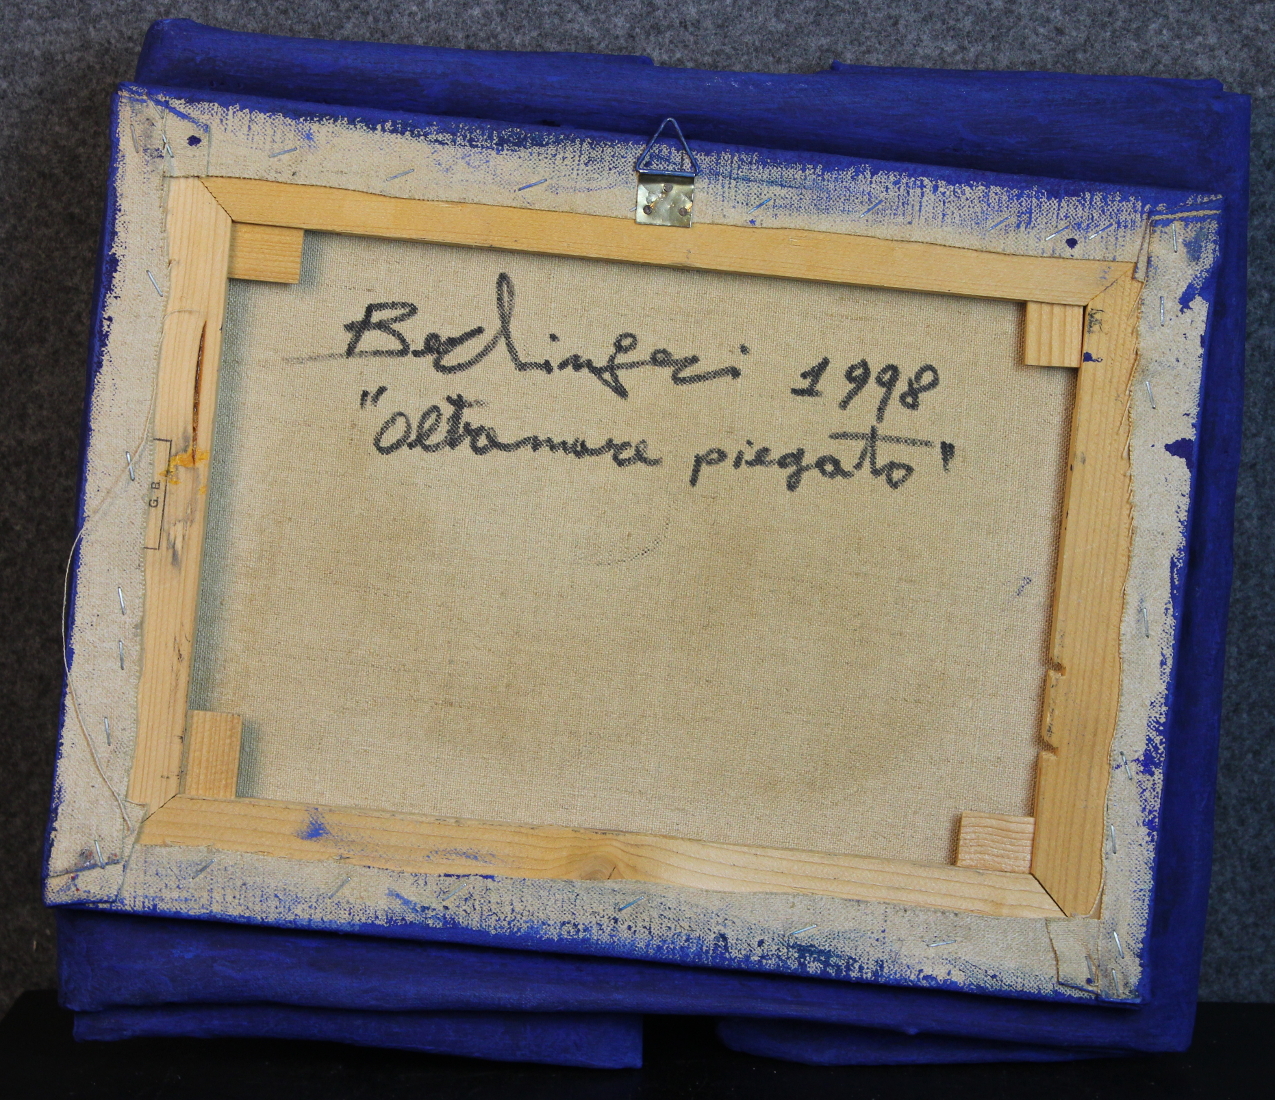 Berlingeri 1998
"Oltramare piegato"
G.B.